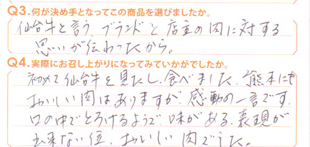 Q3.何が決め手となってこの商品を選びましたか。
仙台牛と言う、ブランドと店主の肉に対する
思いが伝わったから。
Q4.実際にお召し上がりになってみていかがでしたか。
初めて仙台牛を見たし、食べました。熊本にも
おいしい肉はありますが、感動の一言です。
口の中でとろけるようで味がある、表現が
出来ない位、おいしい肉でした。